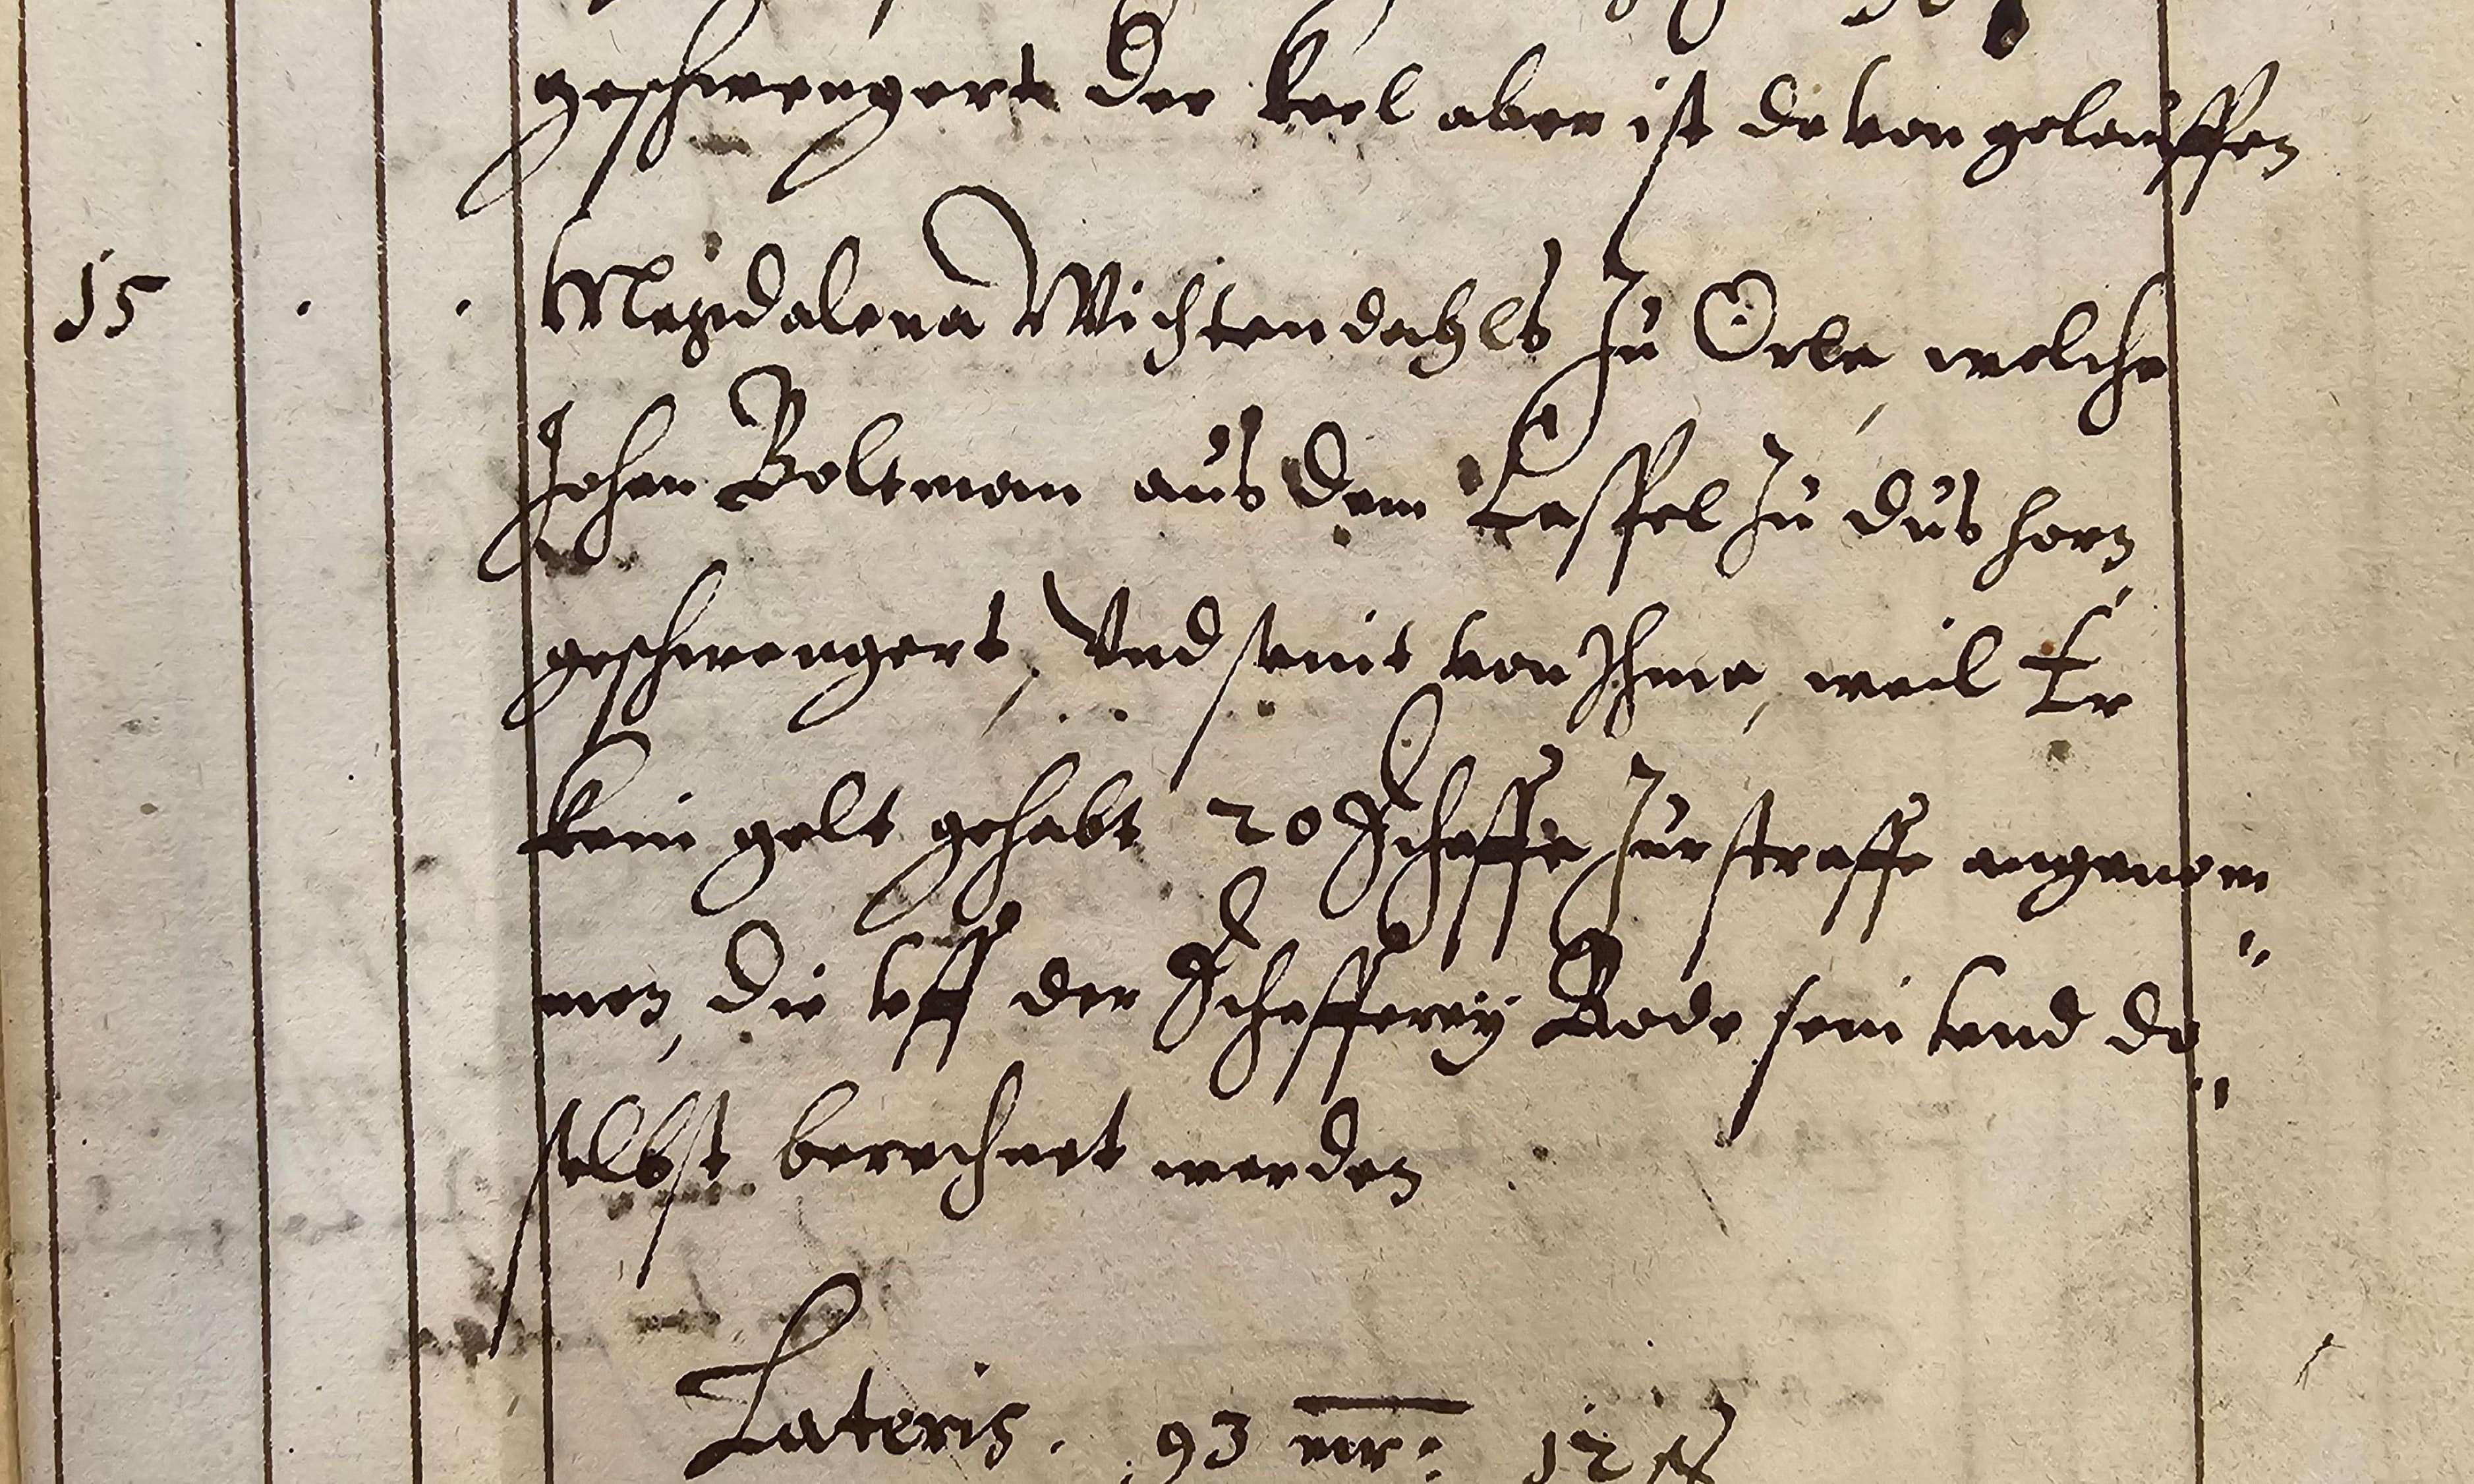 geschwengert der kerl aber ist da von gelauffen
15 Magdalena Wichtendahls zu Örle welche
Johan Boltman aus dem Caspel zu Dushorn
geschwengert, Vnd seint von Ihme, weil Er
kein gelt gehabt 20 Schaffe zur straffe angenom
men, die vff der Schefferey Rode sein vnd da
selbst berechnet werden
Lateris . 93 mr: 12 ß